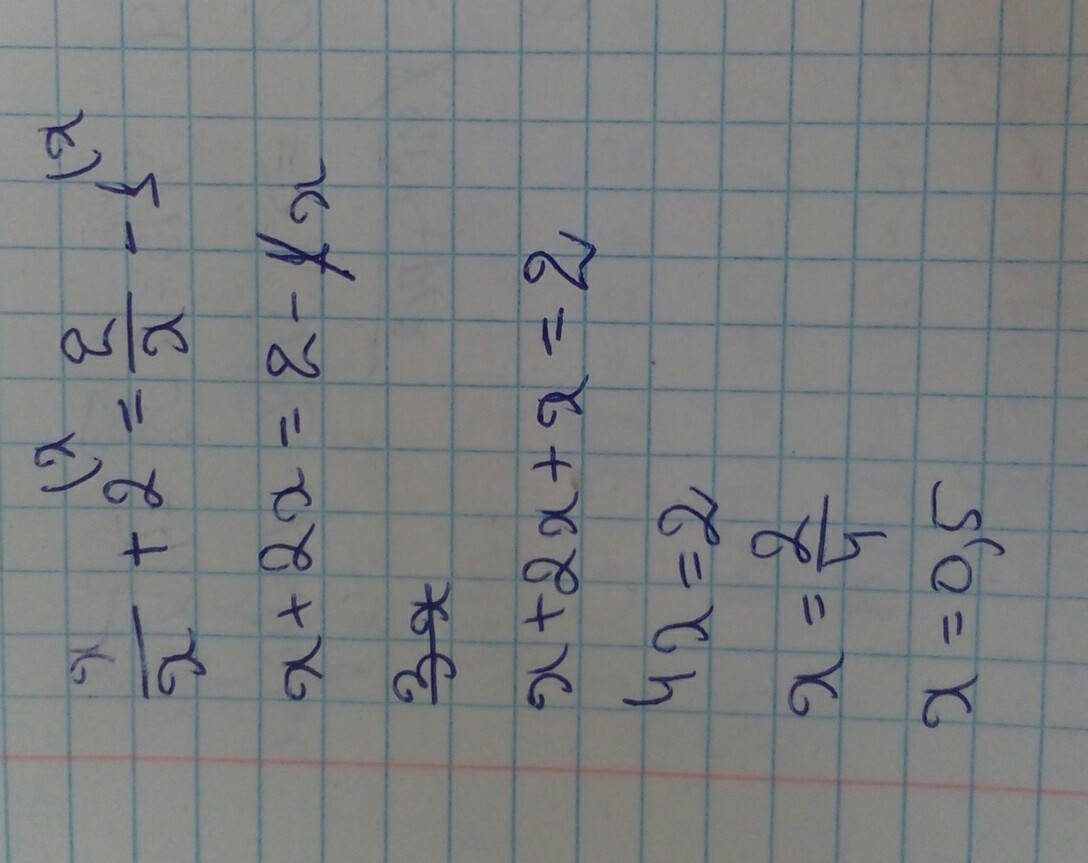 x/x + 2 (x = 2/x - 1 (x
x + 2x = 2 - x
x + 2x + x = 2
4x = 2
x = 2/4
x = 0,5